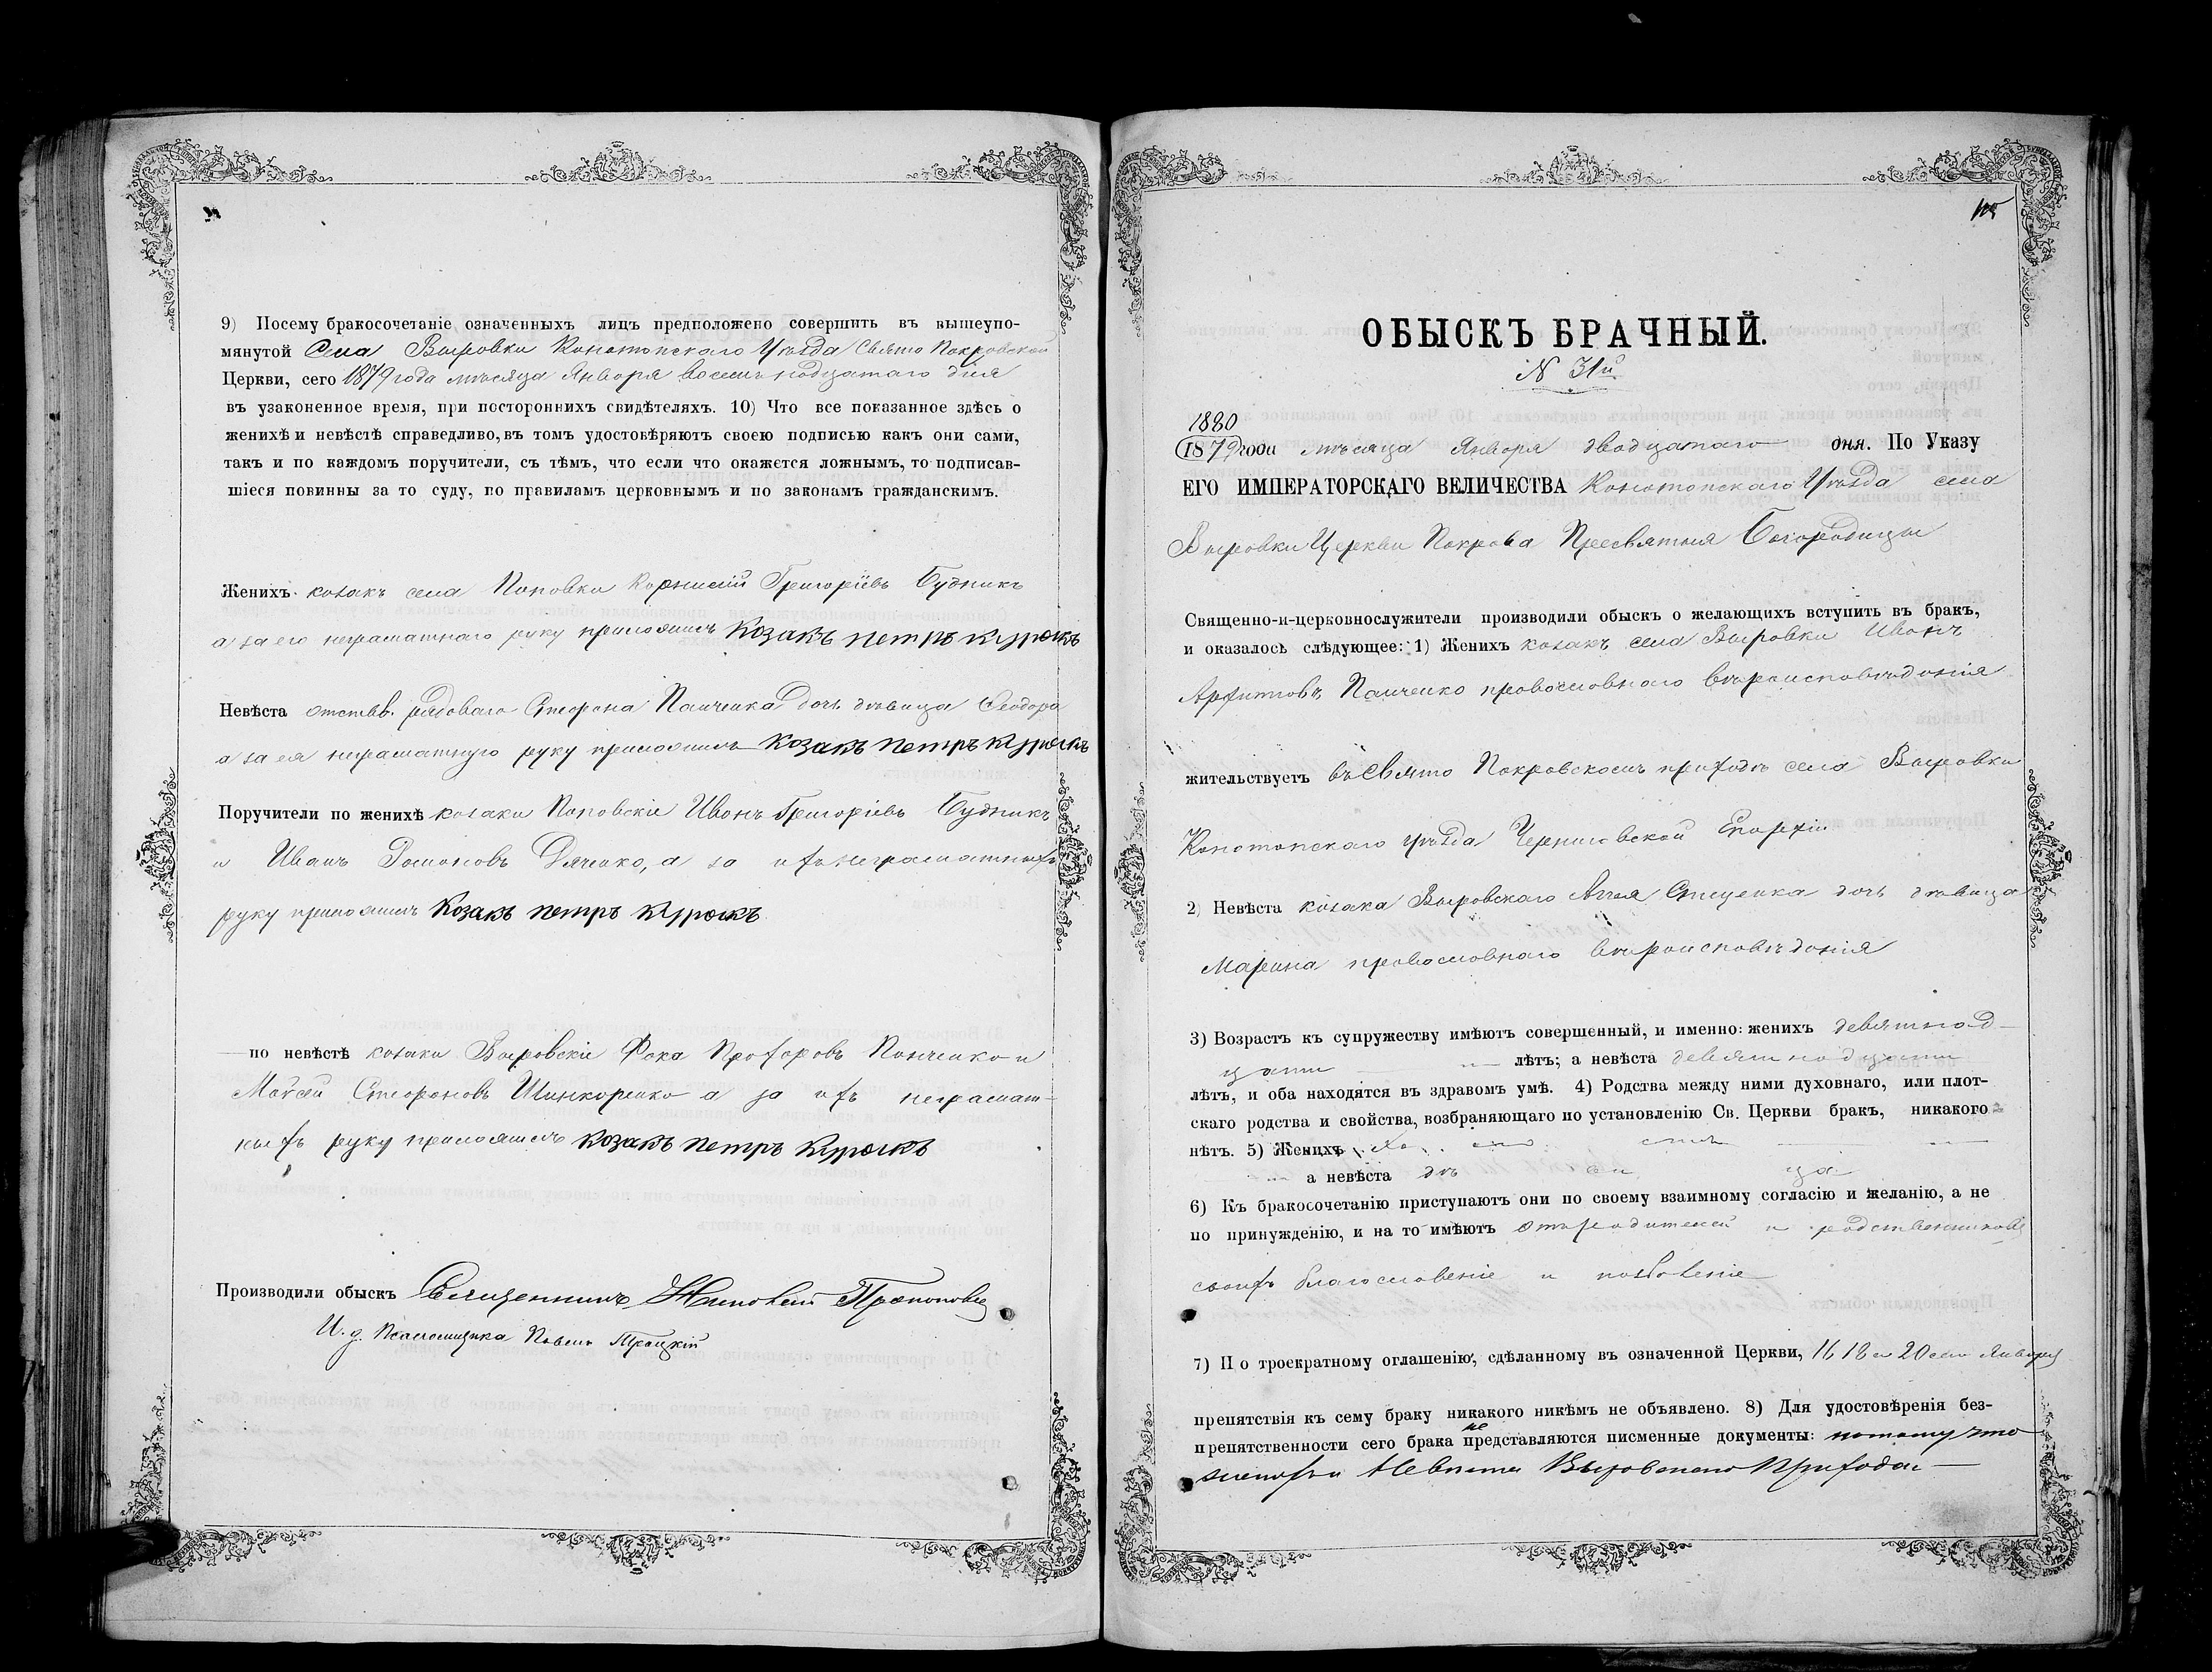 9) Посему бракосочетаніе означенныхъ лицъ предположено совершить въ вышеупо-
мянутой Села Выровки Конотопскаго Уѣзда Свято Покровской
Церкви, сего 1879 года мѣсяца Января восемьнадцатаго дня
въ узаконенное время, при постороннихъ свидѣтеляхъ. 10) Что все показанное здѣсь о
женихѣ и невѣстѣ справедливо, въ томъ удостовѣряютъ своею подписью какъ они сами,
такъ и по каждомъ поручители, съ тѣмъ, что если что окажется ложнымъ, то подписав-
шіеся повинны за то суду, по правиламъ церковнымъ и по законамъ гражданскимъ.
Женихъ козакъ села Поповки Корнилій Григоріевъ Будникъ
а за его неграматнаго руку приложилъ Козакъ Петръ Курокъ
Невѣста отстав. рядоваго Стефана Панченка дочь дѣвица Феодора
а за ея неграматную руку приложилъ Козакъ Петръ Курокъ
Поручители по женихѣ козаки Поповскіе Иванъ Григоріевъ Будникъ
и Иванъ Романовъ Дяченко, а за ихъ неграматныхъ
руку приложилъ Козакъ Петръ Курокъ
по невѣстѣ козаки Выровскіе Фока Прохоровъ Панченко и
Мойсей Стефановъ Шинкаренко а за ихъ неграмат-
ныхъ руку приложилъ Козакъ Петръ Курокъ
Производили обыскъ Священникъ Зиновій Прокоповичъ
И. д. Псаломщика Павелъ Троицкій
115
ОБЫСКЪ БРАЧНЫЙ.
N 31й
1880
1879 года мѣсяца Января двадцатаго дня. По Указу
ЕГО ИМПЕРАТОРСКАГО ВЕЛИЧЕСТВА Конотопскаго Уѣзда села
Выровки Церкви Покрова Пресвятыя Богородицы
Священно-и-церковнослужители производили обыскъ о желающихъ вступить въ бракъ,
и оказалось слѣдующее: 1) Женихъ козакъ села Выровки Иванъ
Архиповъ Панченко православнаго вѣроисповѣданія
жительствуетъ въ Свято Покровскомъ приходѣ села Выровки
Конотопскаго уѣзда Черниговской Епархіи
2) Невѣста козака Выровскаго Стеценка дочь дѣвица
Марина православнаго вѣроисповѣданія
3) Возрастъ къ супружеству имѣютъ совершенный, и именно: женихъ девятнад-
цати лѣтъ; а невѣста девятнадцати
лѣтъ, и оба находятся въ здравомъ умѣ. 4) Родства между ними духовнаго, или плот-
скаго родства и свойства, возбраняющаго по установленію Св. Церкви бракъ, никакого
нѣтъ. 5) Женихъ холостъ
а невѣста дѣвица
6) Къ бракосочетанію приступаютъ они по своему взаимному согласію и желанію, а не
по принужденію, и на то имѣютъ отъ родителей и родственниковъ
своихъ благословеніе и позволеніе
7) По троекратному оглашенію, сдѣланному въ означенной Церкви, 16 18 и 20 Января
препятствія къ сему браку никакого никѣмъ не объявлено. 8) Для удостовѣренія без-
препятственности сего брака не представляются писменные документы: потому что
женихъ и Невѣста Выровскаго Прихода